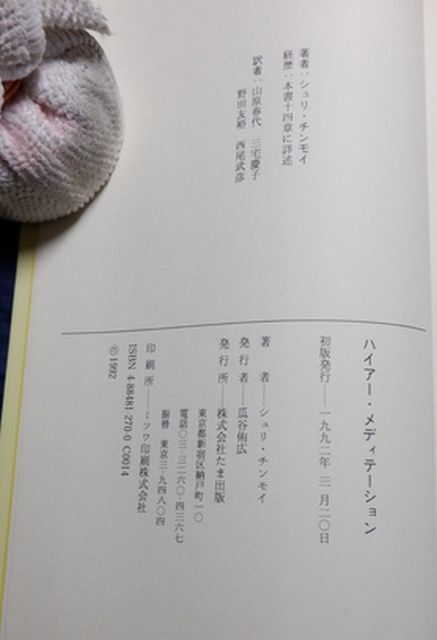 著者:シュリ・チンモイ
経歴:本書十四章に詳述
訳者:山原春代 三宅慶子
野田友裕 西尾武彦
ハイアー・メディテーション
初版発行――一九九二年 三月二〇日
著 者――シュリ・チンモイ
発行者――瓜谷侑広
発行所――株式会社たま出版
東京都新宿区納戸町一〇
電話〇三-三二六〇-四三六七
振替 東京三-九四八〇四
印刷所――ミツワ印刷株式会社
ISBN 4-88481-270-0 C0014
©1992